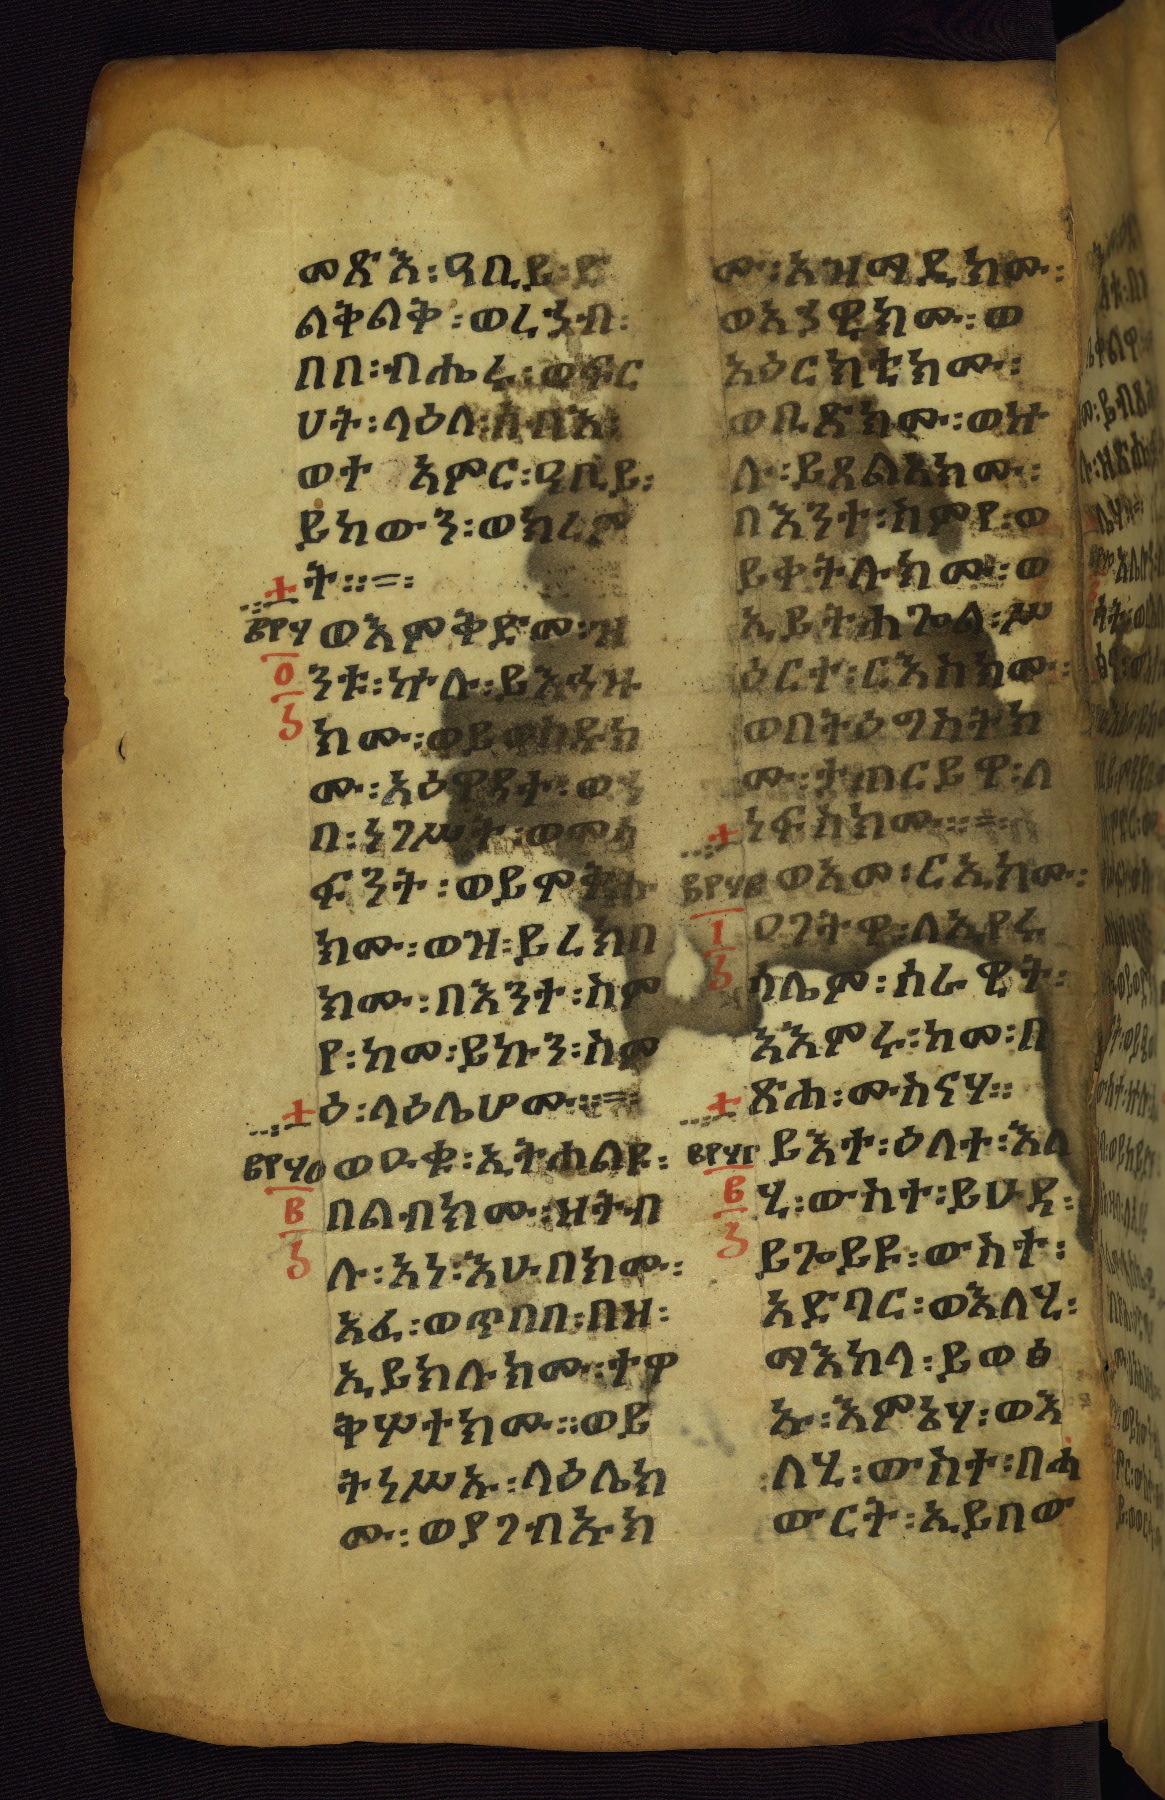 መጽእ፡ዓቢይ፡ድ
ልቅልቅ፡ወረኃብ፡
በበ፡ብሔሩ፡ወፍር
ሀት፡ላዕለ፡ሰብእ፡
ወተ ኣምር፡ዓቢይ፡
ይከውን፡ወክረም
ት።=፡
ወእምቅድመ፡ዝ
ንቱ፡ኵሉ፡ይእኅዙ
ክሙ፡ወይወስዱክ
ሙ፡አዕዋዳተ፡ወኀ
በ፡ነገሥት፡ወመሳ
ፍንት፡ወይሞቅሑ
ክሙ፡ወዝ፡ይረክበ
ክሙ፡በእንተ፡ስም
የ፡ከመ፡ይኩን፡ስም
ዕ፡ላዕሌሆሙ።=፡
ወዑቁ፡ኢትሐልዩ፡
በልብክሙ፡ዝትብ
ሉ፡አነ፡እሁበክሙ፡
አፈ፡ወጥበበ፡በዝ፡
ኢይክሉክሙ፡ተዋ
ቅሦተክሙ።ወይ
ትነሥኡ፡ላዕሌክ
ሙ፡ወያገብኡክ
ሙ፡አዝማዲክሙ፡
ወአኃዊክሙ፡ወ
አዕርክቲክሙ፡
ወቢጽክሙ፡ወዙ
ሉ፡ይጸልአክሙ፡
በእንተ፡ስምየ፡ወ
ይቀትሉክሙ፡ወ
ኢይትሐጐል፡ሥ
ዕርተ፡ርእስክሙ፡
ወበትዕግስትክ
ሙ፡ተጠርይዋ፡ለ
ነፍስክሙ።=፡
ወአመ፡ርኢክሙ፡
ዐገትዋ፡ለኢየሩ
ሳሌም፡ሰራዊት፡
አእምሩ፡ከመ፡በ
ጽሐ፡ሙስናሃ።
ይእተ፡ዕለተ፡እለ
ሂ፡ውስተ፡ይሁዳ፡
ይጐይዩ፡ውስተ፡
አድባር፡ወእለሂ፡
ማእከላ፡ይወፅ
ኡ፡እምኔሃ፡ወእ
ለሂ፡ውስተ፡በሓ
ውርት፡ኢይበው